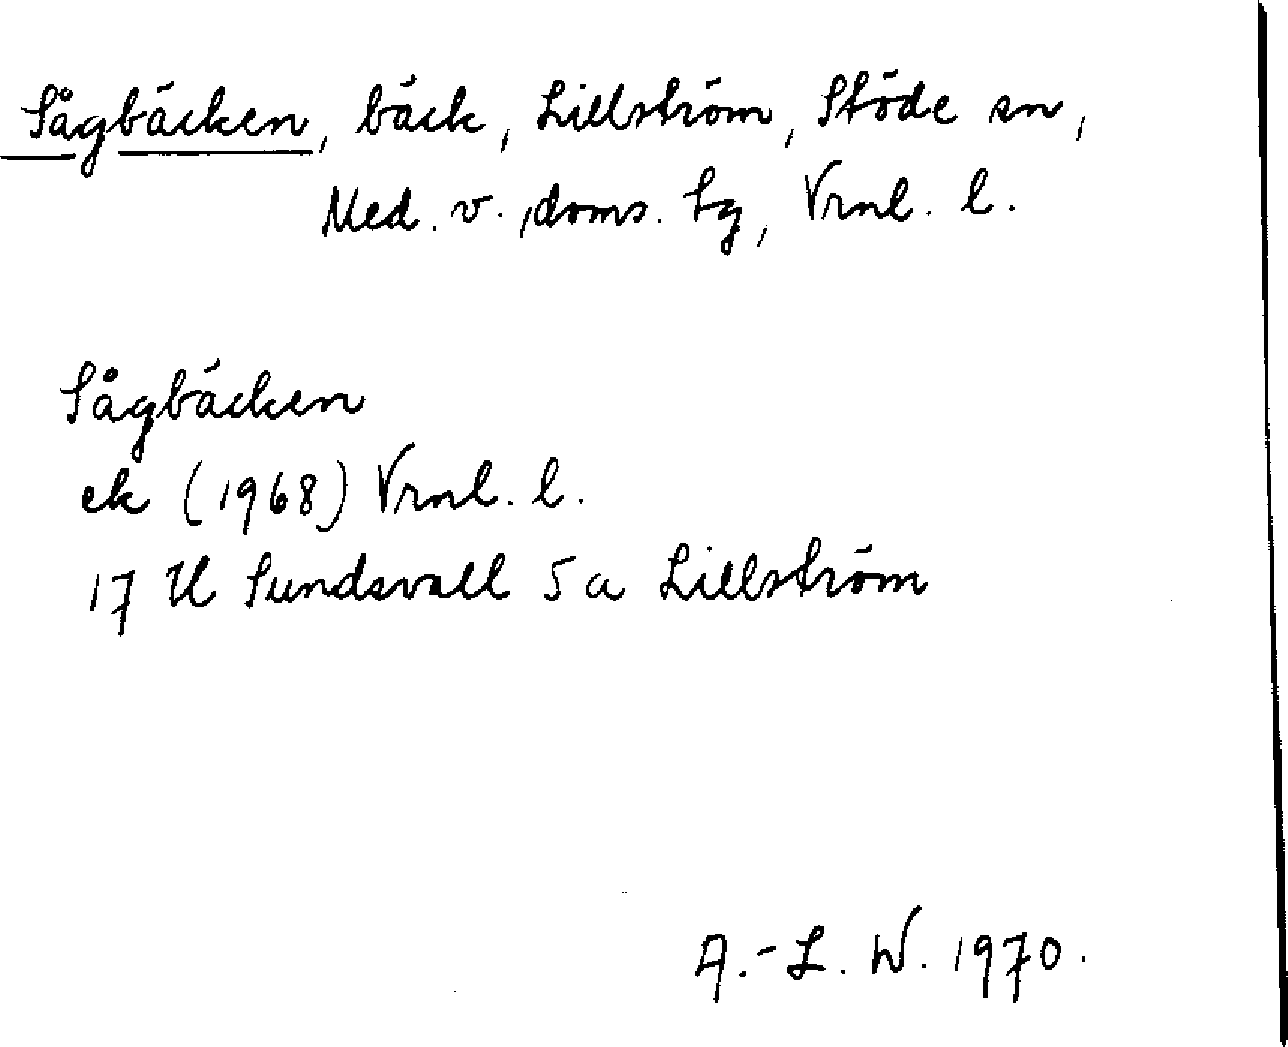 Sågbäcken, bäck, Lillström, Stöde sn,
Med. v., doms. tg, Vrnl. l.
Sågbäcken
ek (1968) Vrnl. l.
17 H Sundsvall 5 a Lillström
A.-L. W. 1970.